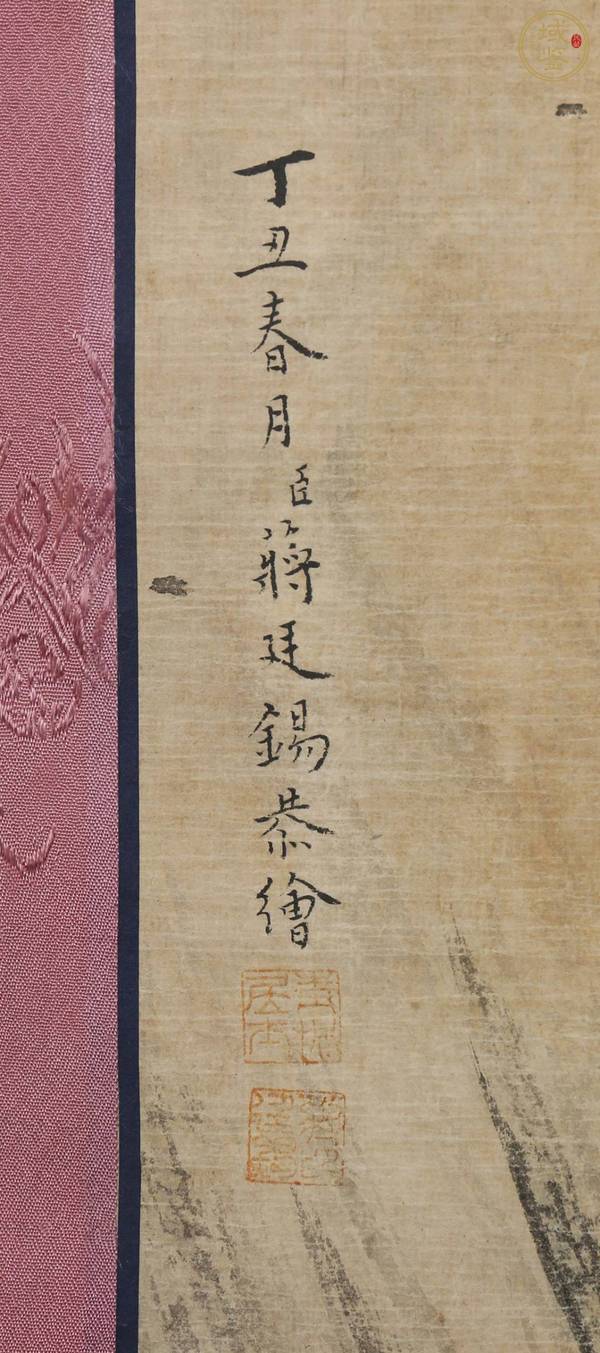 丁丑春月臣蔣廷錫恭繪